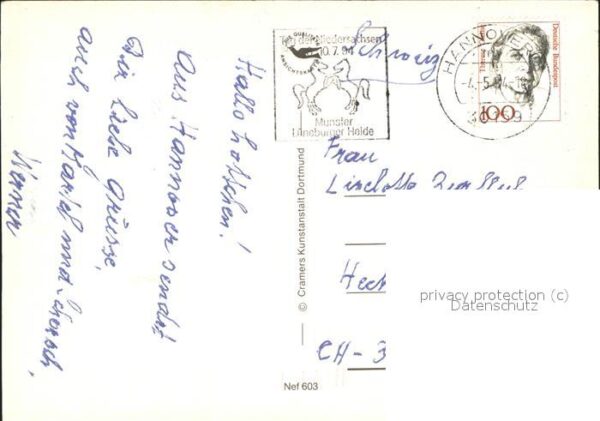 Hallo Lottchen!
Aus Hannover sendet
Dir liebe Grüsse,
auch von
Werner
Tag der Niedersachsen
10.7.94
Munster
Lüneburger Heide
Schweiz
HANNOVER
30159
Deutsche Bundespost
100
Frau
Liselotte
CH-3
© Cramers Kunstanstalt Dortmund
Nef 603
privacy protection (c)
Datenschutz